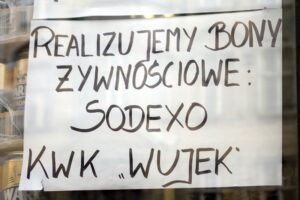 REALIZUJEMY BONY
ŻYWNOŚCIOWE:
SODEXO
KWK „WUJEK"